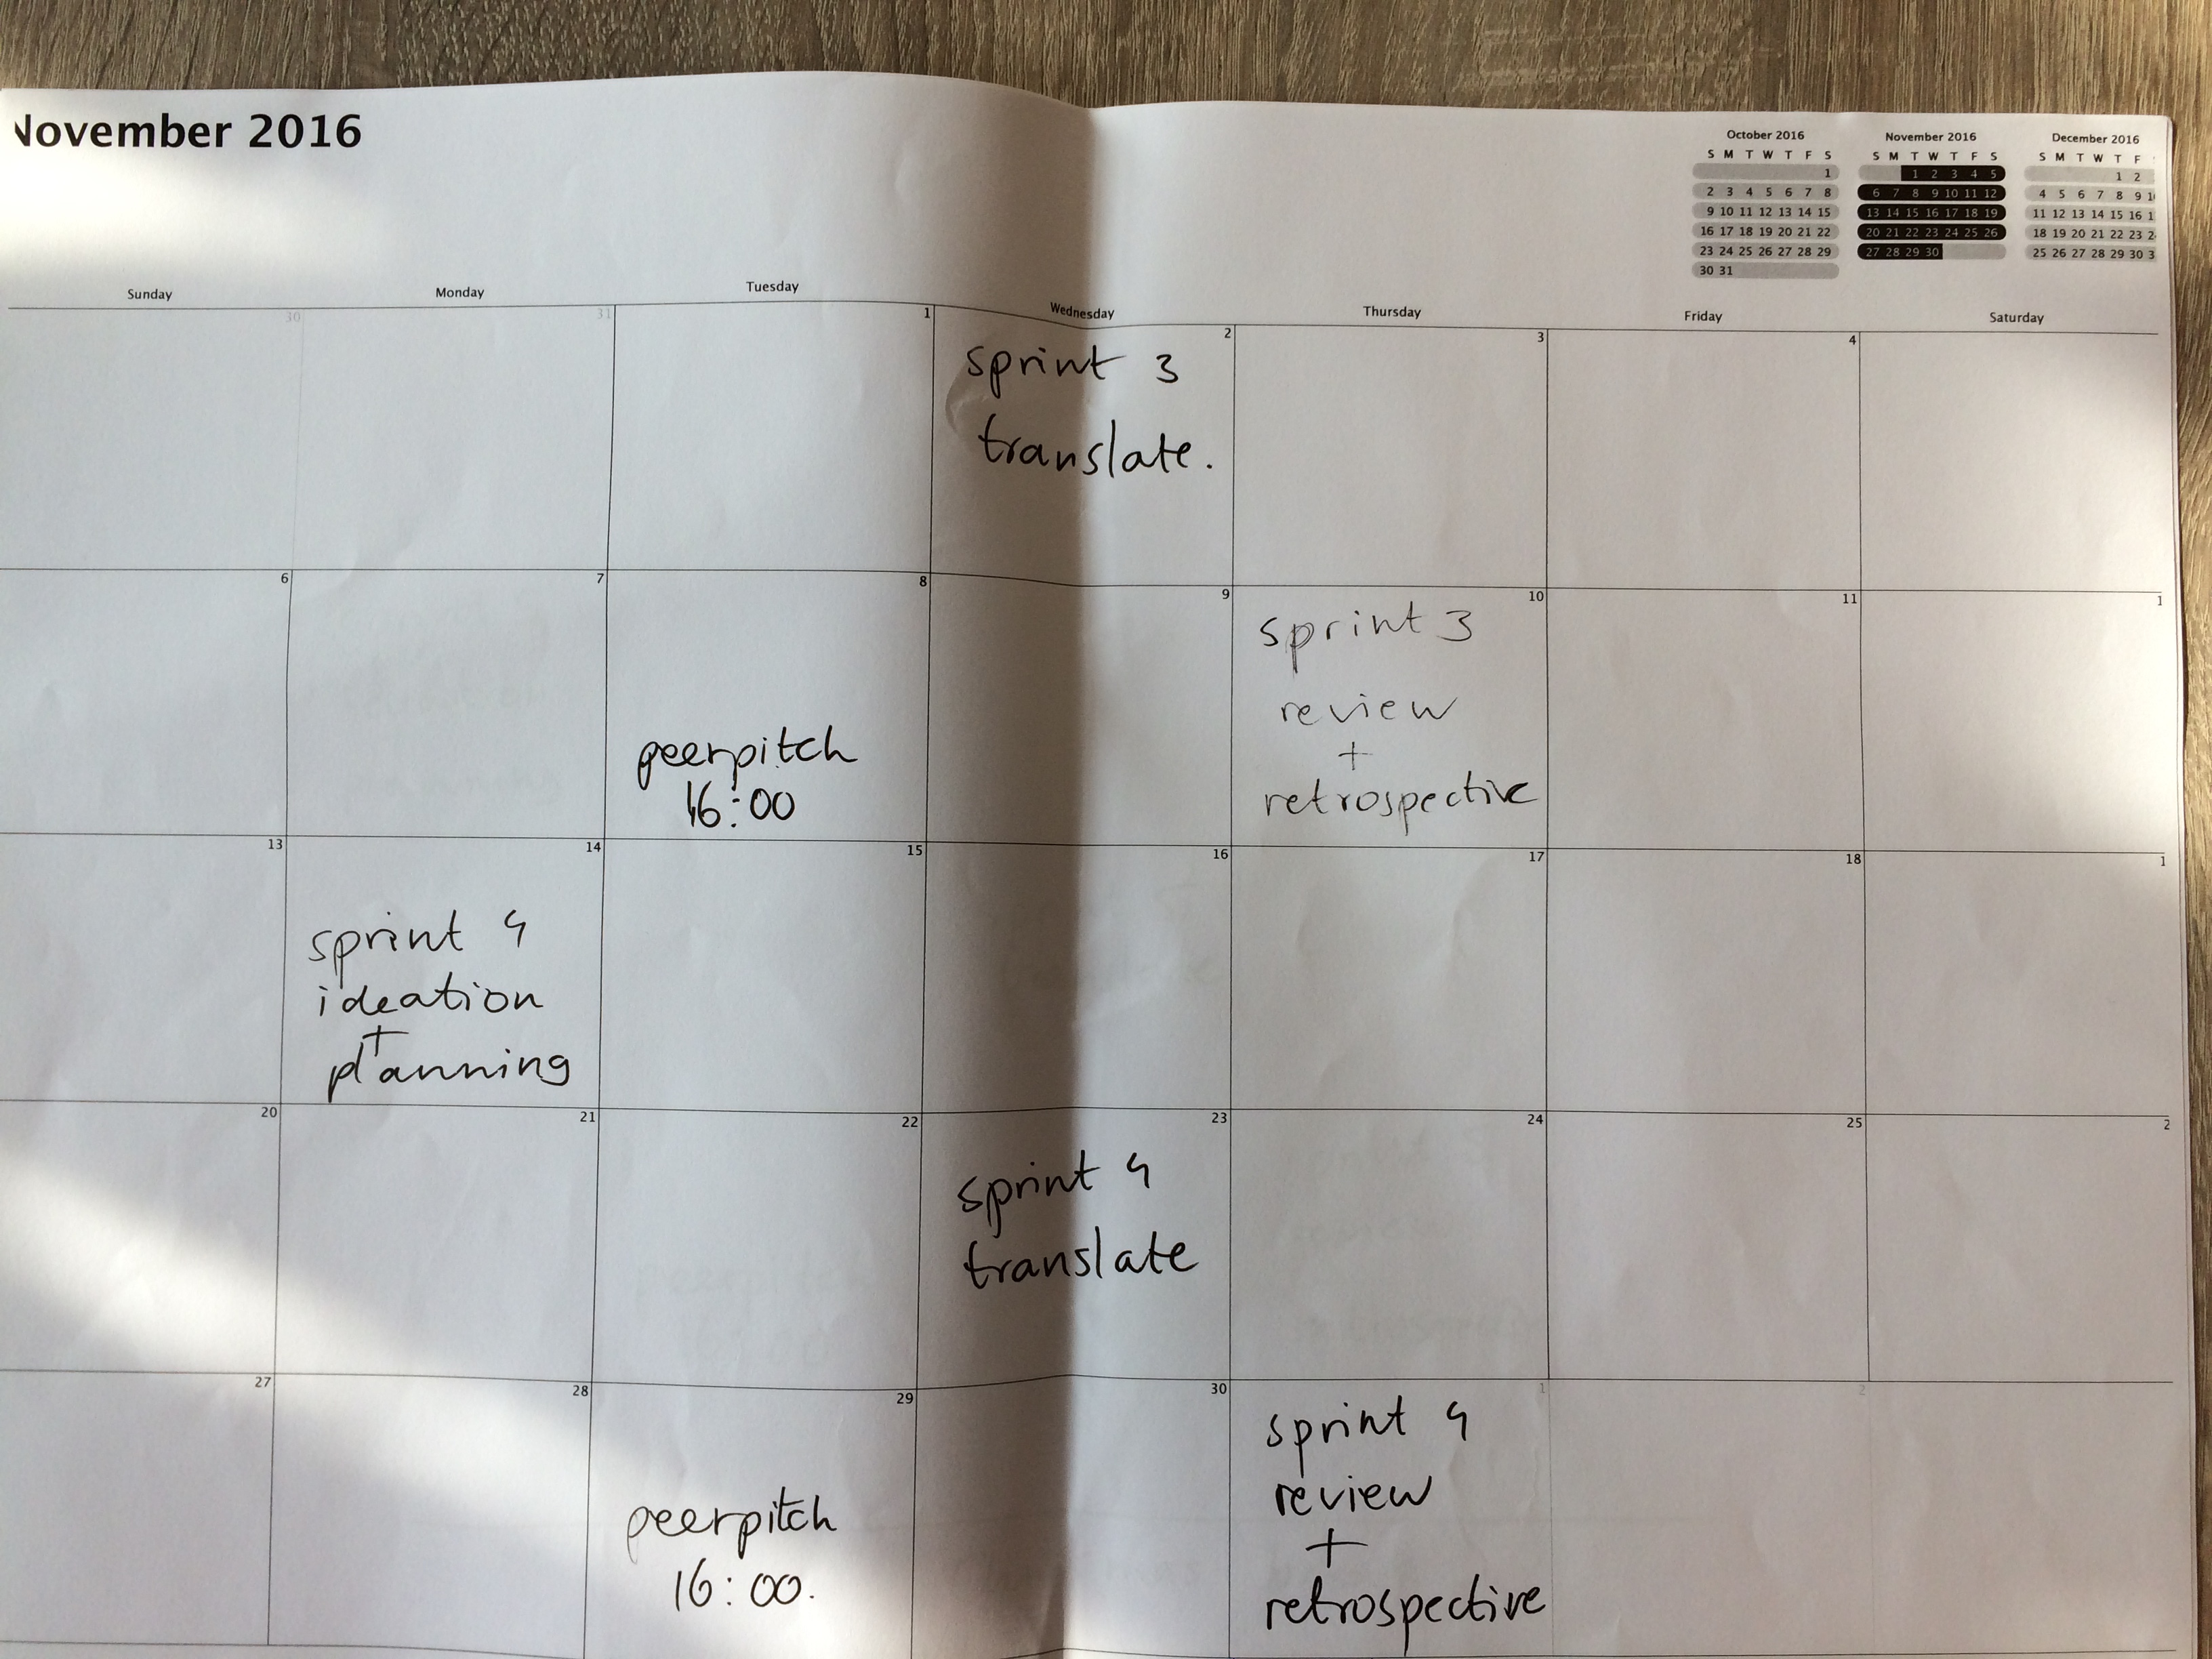 November 2016
October 2016
S M T W T F S
1
2 3 4 5 6 7 8
9 10 11 12 13 14 15
16 17 18 19 20 21 22
23 24 25 26 27 28 29
30 31
November 2016
S M T W T F S
1 2 3 4 5
6 7 8 9 10 11 12
13 14 15 16 17 18 19
20 21 22 23 24 25 26
27 28 29 30
December 2016
S M T W T F
1 2
4 5 6 7 8 9 1
11 12 13 14 15 16 1
18 19 20 21 22 23 2
25 26 27 28 29 30 3
Sunday Monday Tuesday Wednesday Thursday Friday Saturday
30 31 1 2 3 4
sprint 3
translate.
6 7 8 9 10 11 1
peerpitch
16:00
sprint 3
review
+
retrospective
13 14 15 16 17 18 1
sprint 4
ideation
+
planning
20 21 22 23 24 25 2
sprint 4
translate
27 28 29 30 1 2
peerpitch
16:00.
sprint 4
review
+
retrospective